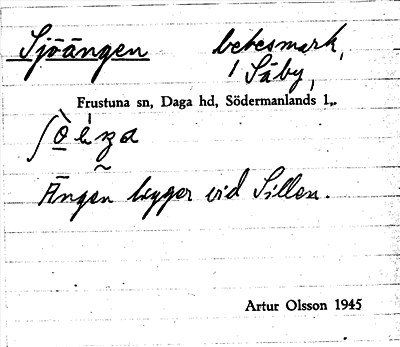 Sjöängen bebesmark,
1 Säby,
Frustuna sn, Daga hd, Södermanlands l..
Ängen ligger vid Sillen.
Artur Olsson 1945